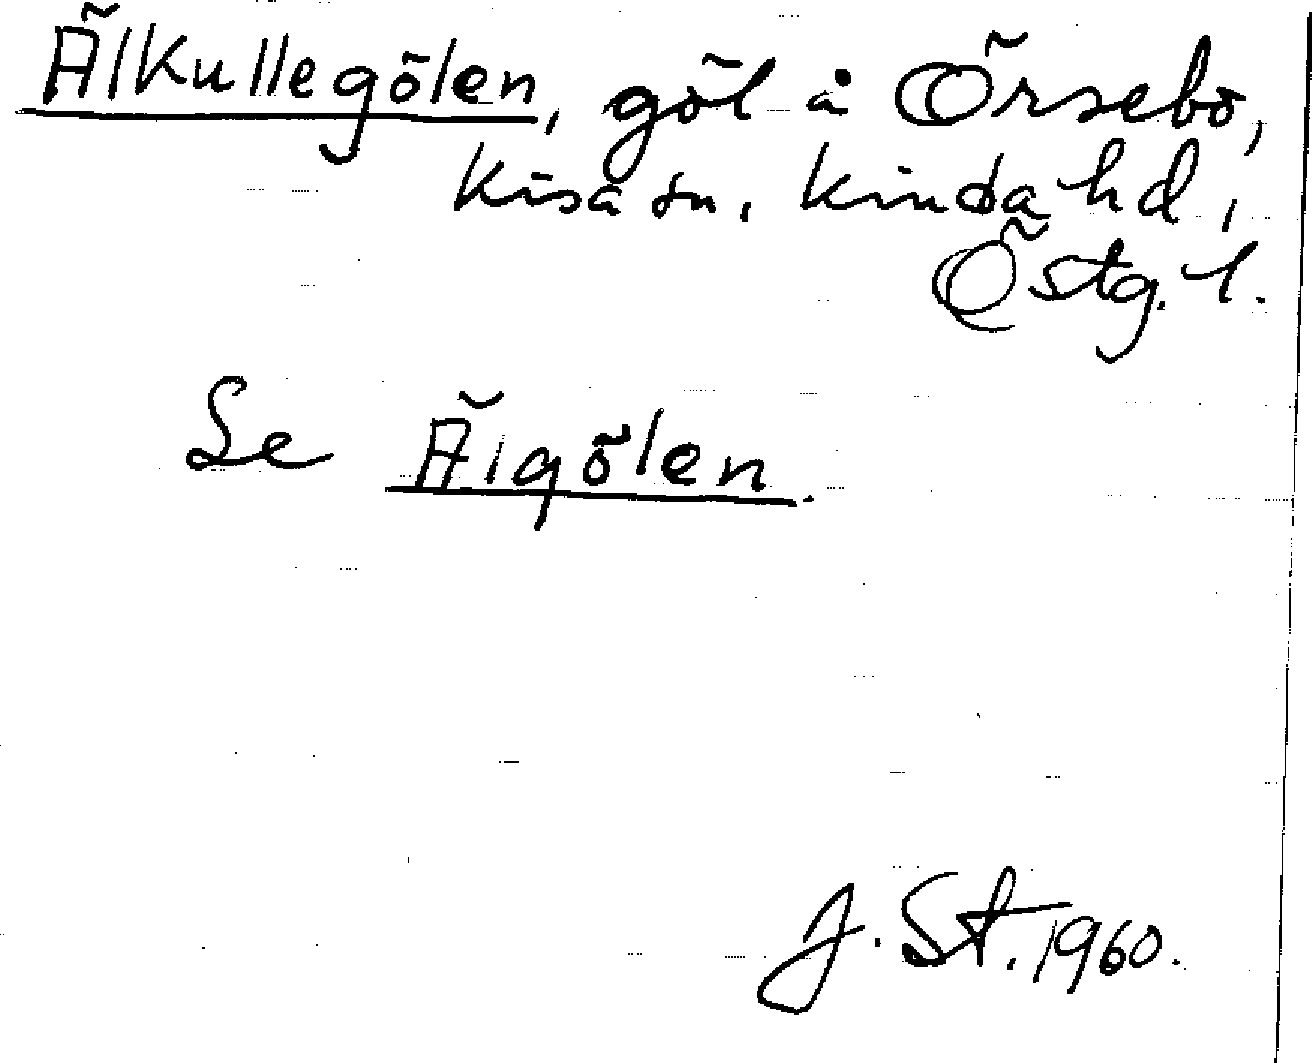 Älkullegölen, göl å Örsebo,
Kisa sn. Kinda hd,
Östg. l.
Se Älgölen.
J. St. 1960.